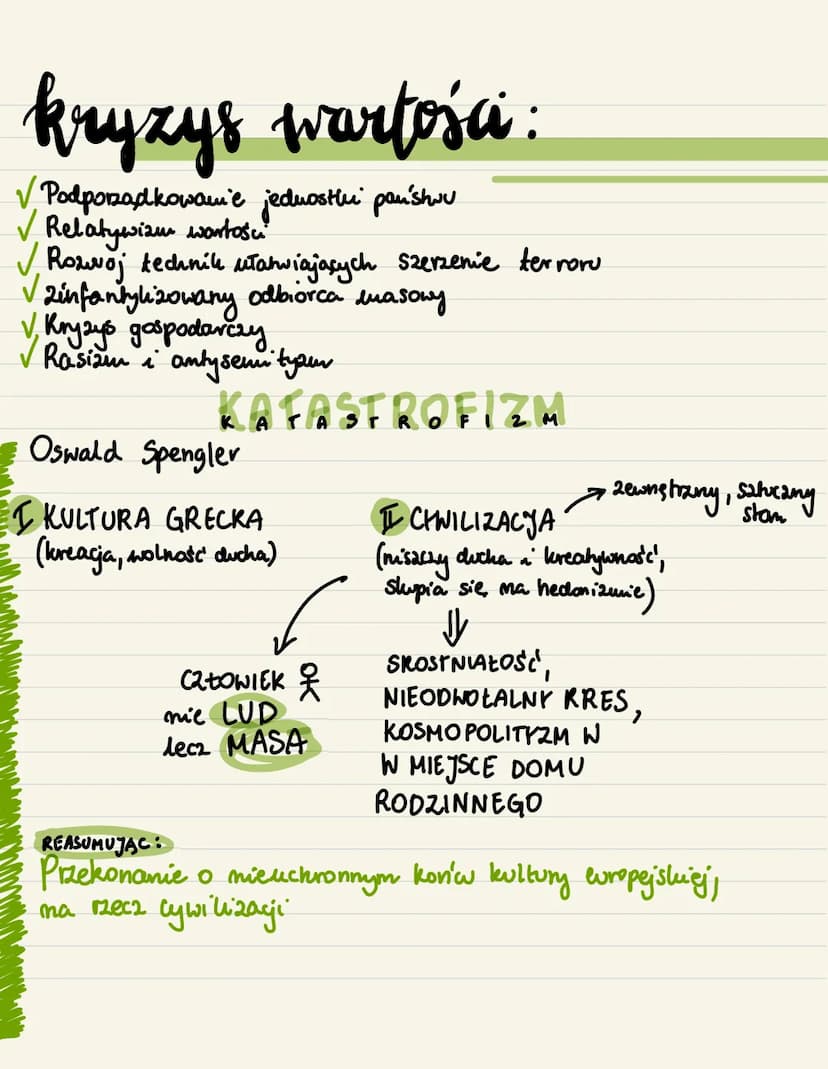 kryzys wartości:
Podporządkowanie jednostki państwu
Relatywizm wartości
Rozwój technik ułatwiających szerzenie terroru
zinfantylizowany odbiorca masowy
Kryzys gospodarczy
Rasizm i antysemityzm
KATASTROFIZM
KATASTROFIZM
Oswald Spengler
I KULTURA GRECKA
(kreacja, wolność ducha)
II CYWILIZACJA
zewnętrzny, sztuczny
stan
(niszczy ducha i kreatywność,
skupia się na hedonizmie)
CZŁOWIEK
nie LUD
lecz MASA
SKOSTNIAŁOŚĆ,
NIEODWOŁALNY KRES,
KOSMOPOLITYZM W
W MIEJSCE DOMU
RODZINNEGO
REASUMUJĄC:
Przekonanie o nieuchronnym końcu kultury europejskiej,
na rzecz cywilizacji